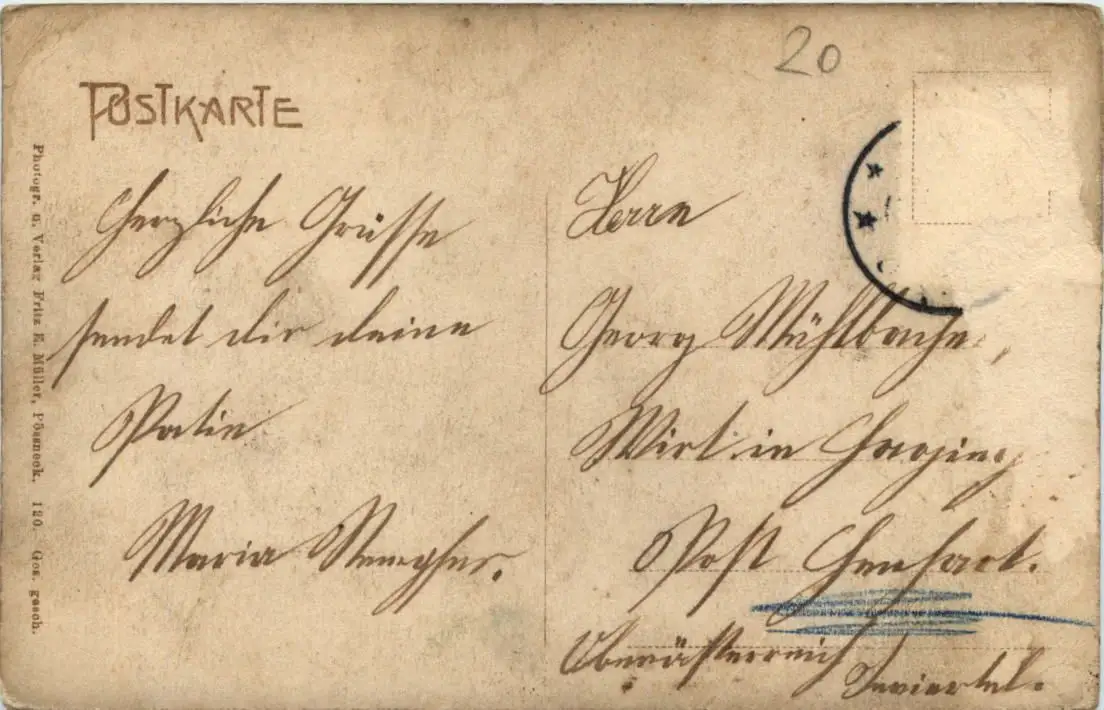 20
POSTKARTE
Photogr. u. Verlag Fritz E. Müller, Pössneck. 180. Ges. gesch.
Herzliche Grüsse
sendet dir deine
Patin
Maria
Herrn
Georg Mühlbacher,
Wirt in
Post
Oberösterreich
Inviertel.